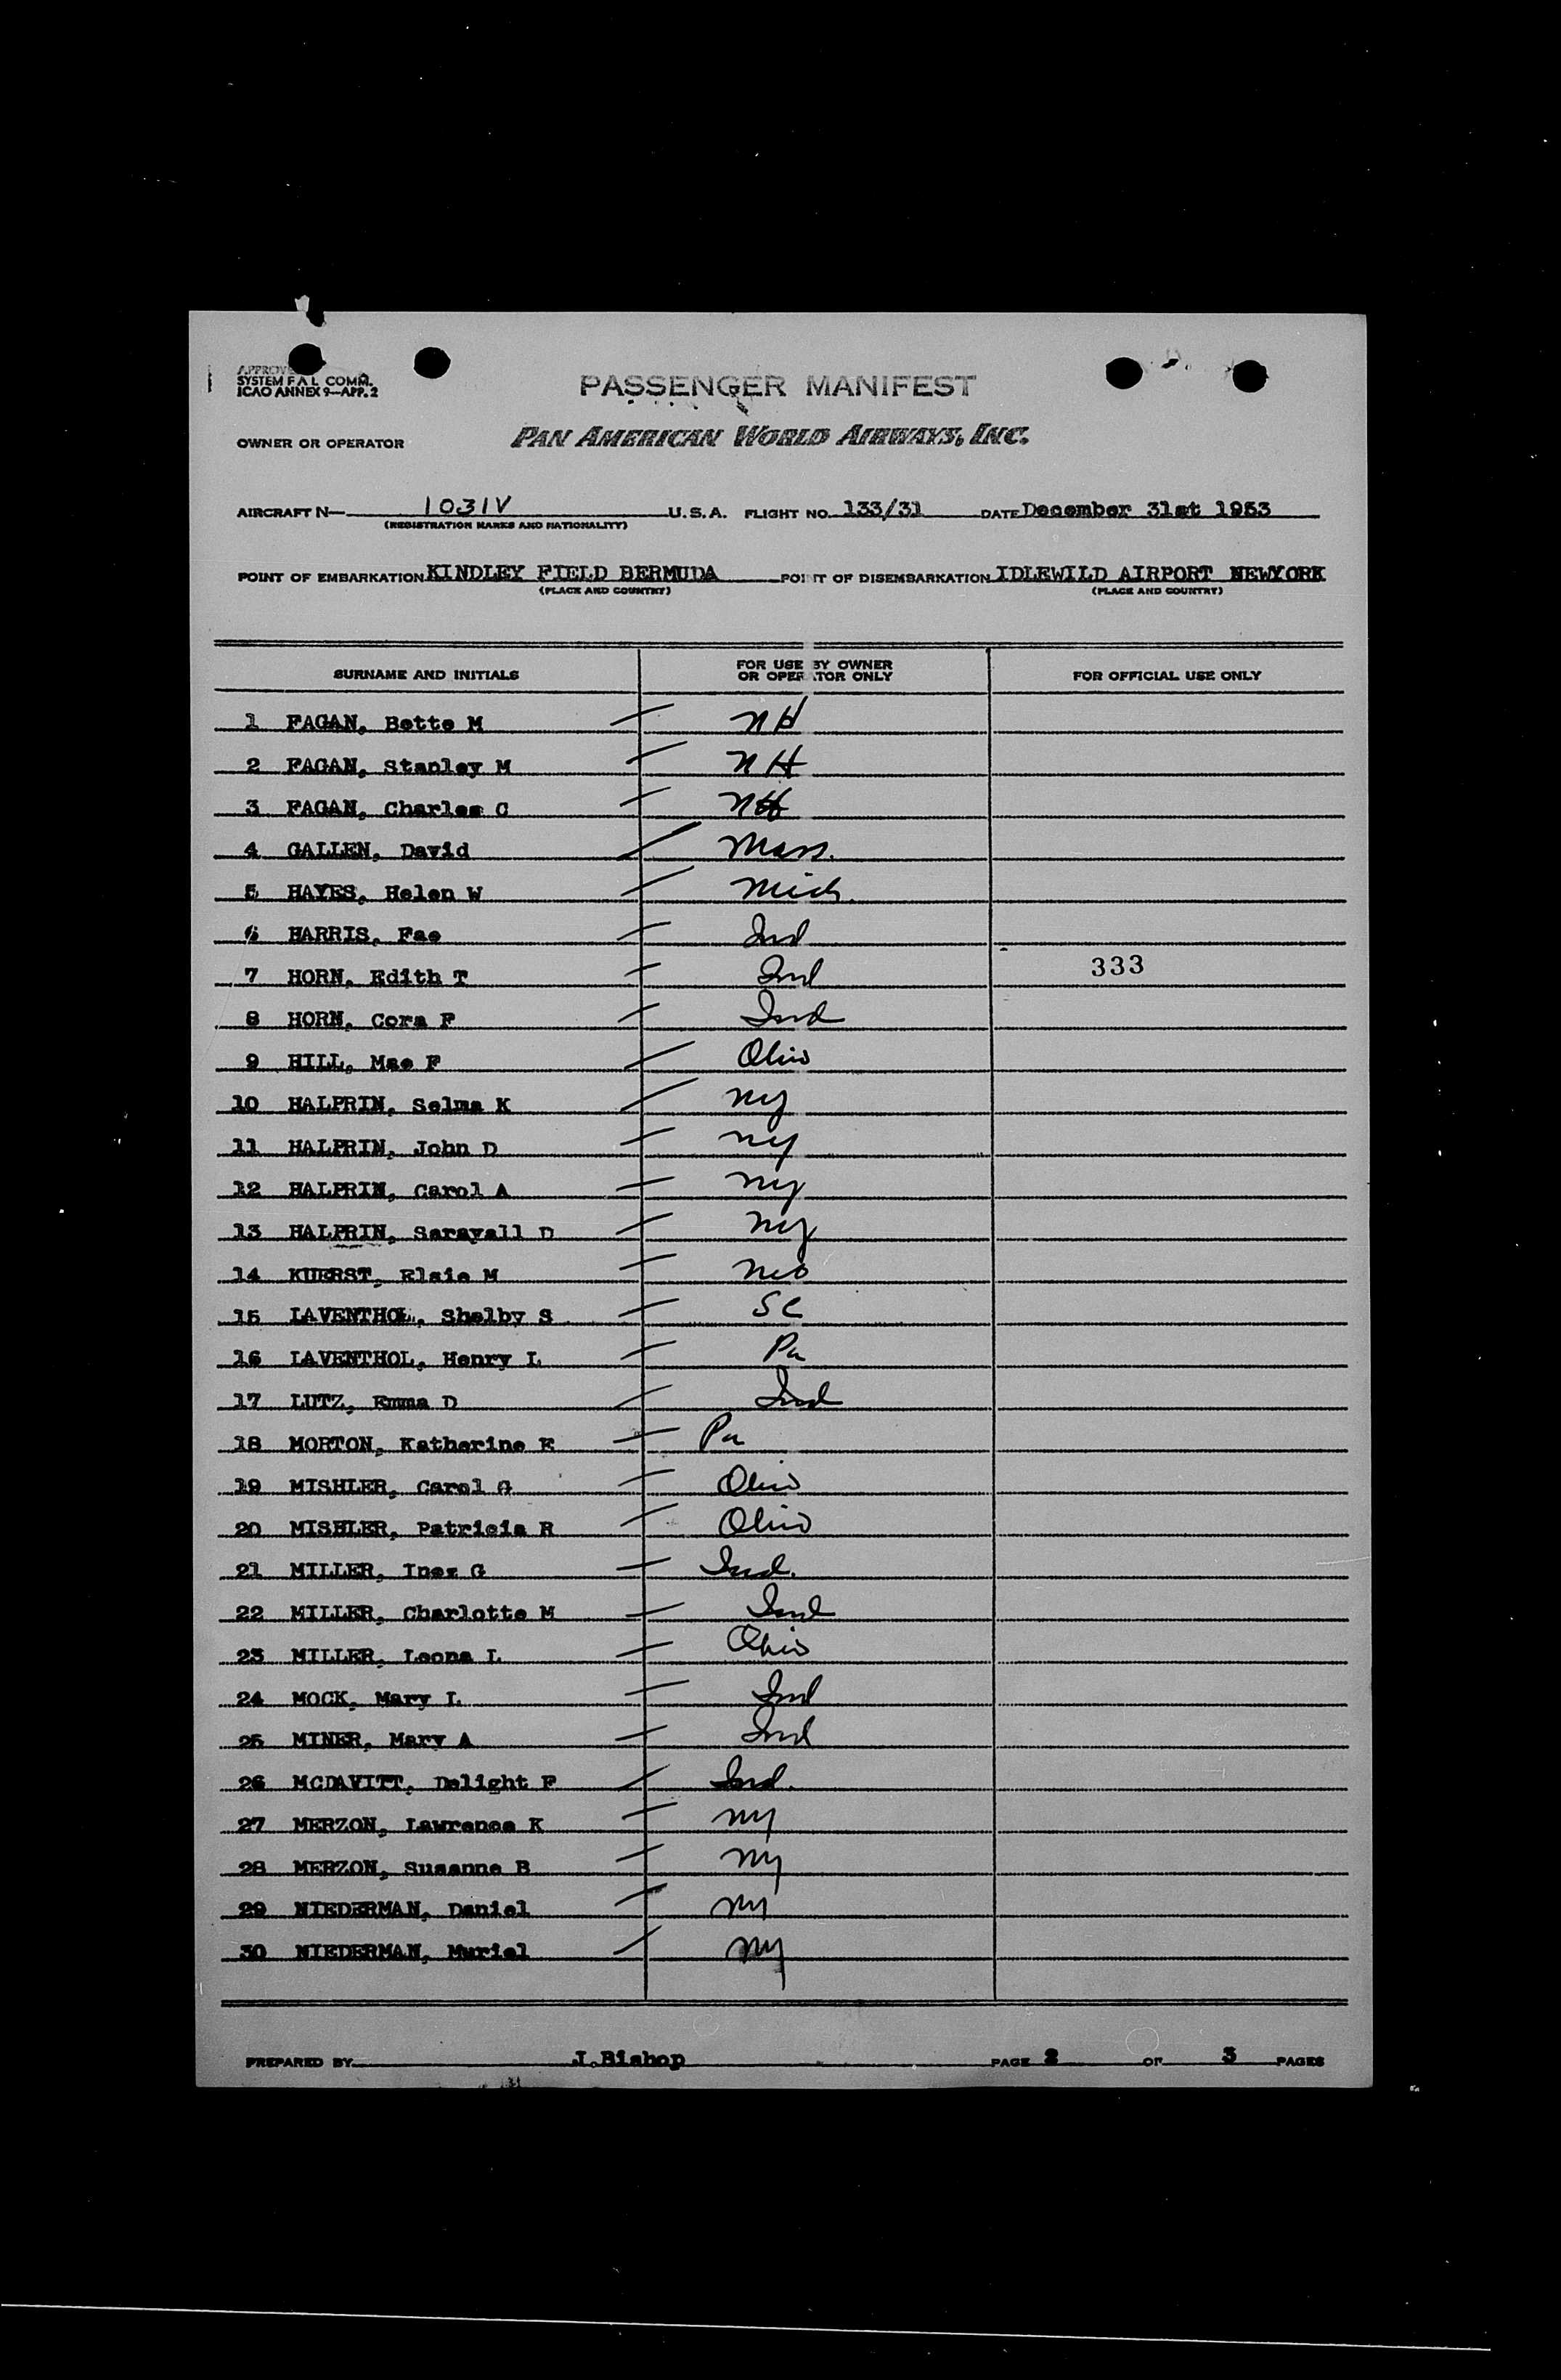 SYSTEM F A L COMM.
ICAO ANNEX 9—APP. 2
PASSENGER MANIFEST
OWNER OR OPERATOR PAN AMERICAN WORLD AIRWAYS, INC.
AIRCRAFT N— 1031V U.S.A. FLIGHT NO. 133/31 DATE December 31st 1953
(REGISTRATION MARKS AND NATIONALITY)
POINT OF EMBARKATION KINDLEY FIELD BERMUDA POINT OF DISEMBARKATION IDLEWILD AIRPORT NEWYORK
(PLACE AND COUNTRY) (PLACE AND COUNTRY)
SURNAME AND INITIALS FOR USE BY OWNER OR OPERATOR ONLY FOR OFFICIAL USE ONLY
1 FAGAN, Bette M NH
2 FAGAN, Stanley M NH
3 FAGAN, Charles C NH
4 GALLEN, David Mass.
5 HAYES, Helen W Mich.
6 HARRIS, Fae Ind
7 HORN, Edith T Ind 333
8 HORN, Cora F Ind
9 HILL, Mae F Ohio
10 HALPRIN, Selma K NY
11 HALPRIN, John D NY
12 HALPRIN, Carol A NY
13 HALPRIN, Sarayall D NY
14 KUERST, Elsie M Mo
15 LAVENTHOL, Shelby S SC
16 LAVENTHOL, Henry L Pa
17 LUTZ, Emma D Ind
18 MORTON, Katherine E Pa
19 MISHLER, Carol G Ohio
20 MISHLER, Patricia R Ohio
21 MILLER, Inez G Ind.
22 MILLER, Charlotte M Ind
23 MILLER, Leona L Ohio
24 MOCK, Mary L Ind
25 MINER, Mary A Ind
26 MCDAVITT, Delight F Ind.
27 MERZON, Lawrence K NY
28 MERZON, Susanne B NY
29 NIEDERMAN, Daniel NY
30 NIEDERMAN, Muriel NY
PREPARED BY J.Bishop PAGE 2 OF 3 PAGES